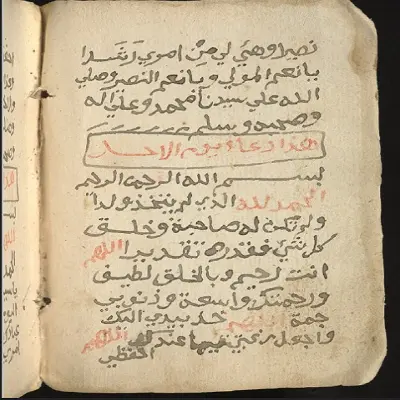 نصيرا وهيئ لي من امري رشدا
يا نعم المولي ويا نعم النصير وصلي
الله علي سيدنا محمد وعلي اله
وصحبه وسلم
هذا دعاء يوم الاحد
بسم الله الرحمن الرحيم
الحمد لله الذي لم يتخذ ولدا
ولم تكن له صاحبة وخلق
كل شيء فقدره تقديرا اللهم
انت رحيم وبالخلق لطيف
ورحمتك واسعة وذنوبي
جمة خذ بيدي اليك
واجعل رغبتي فيما عندك اللهم